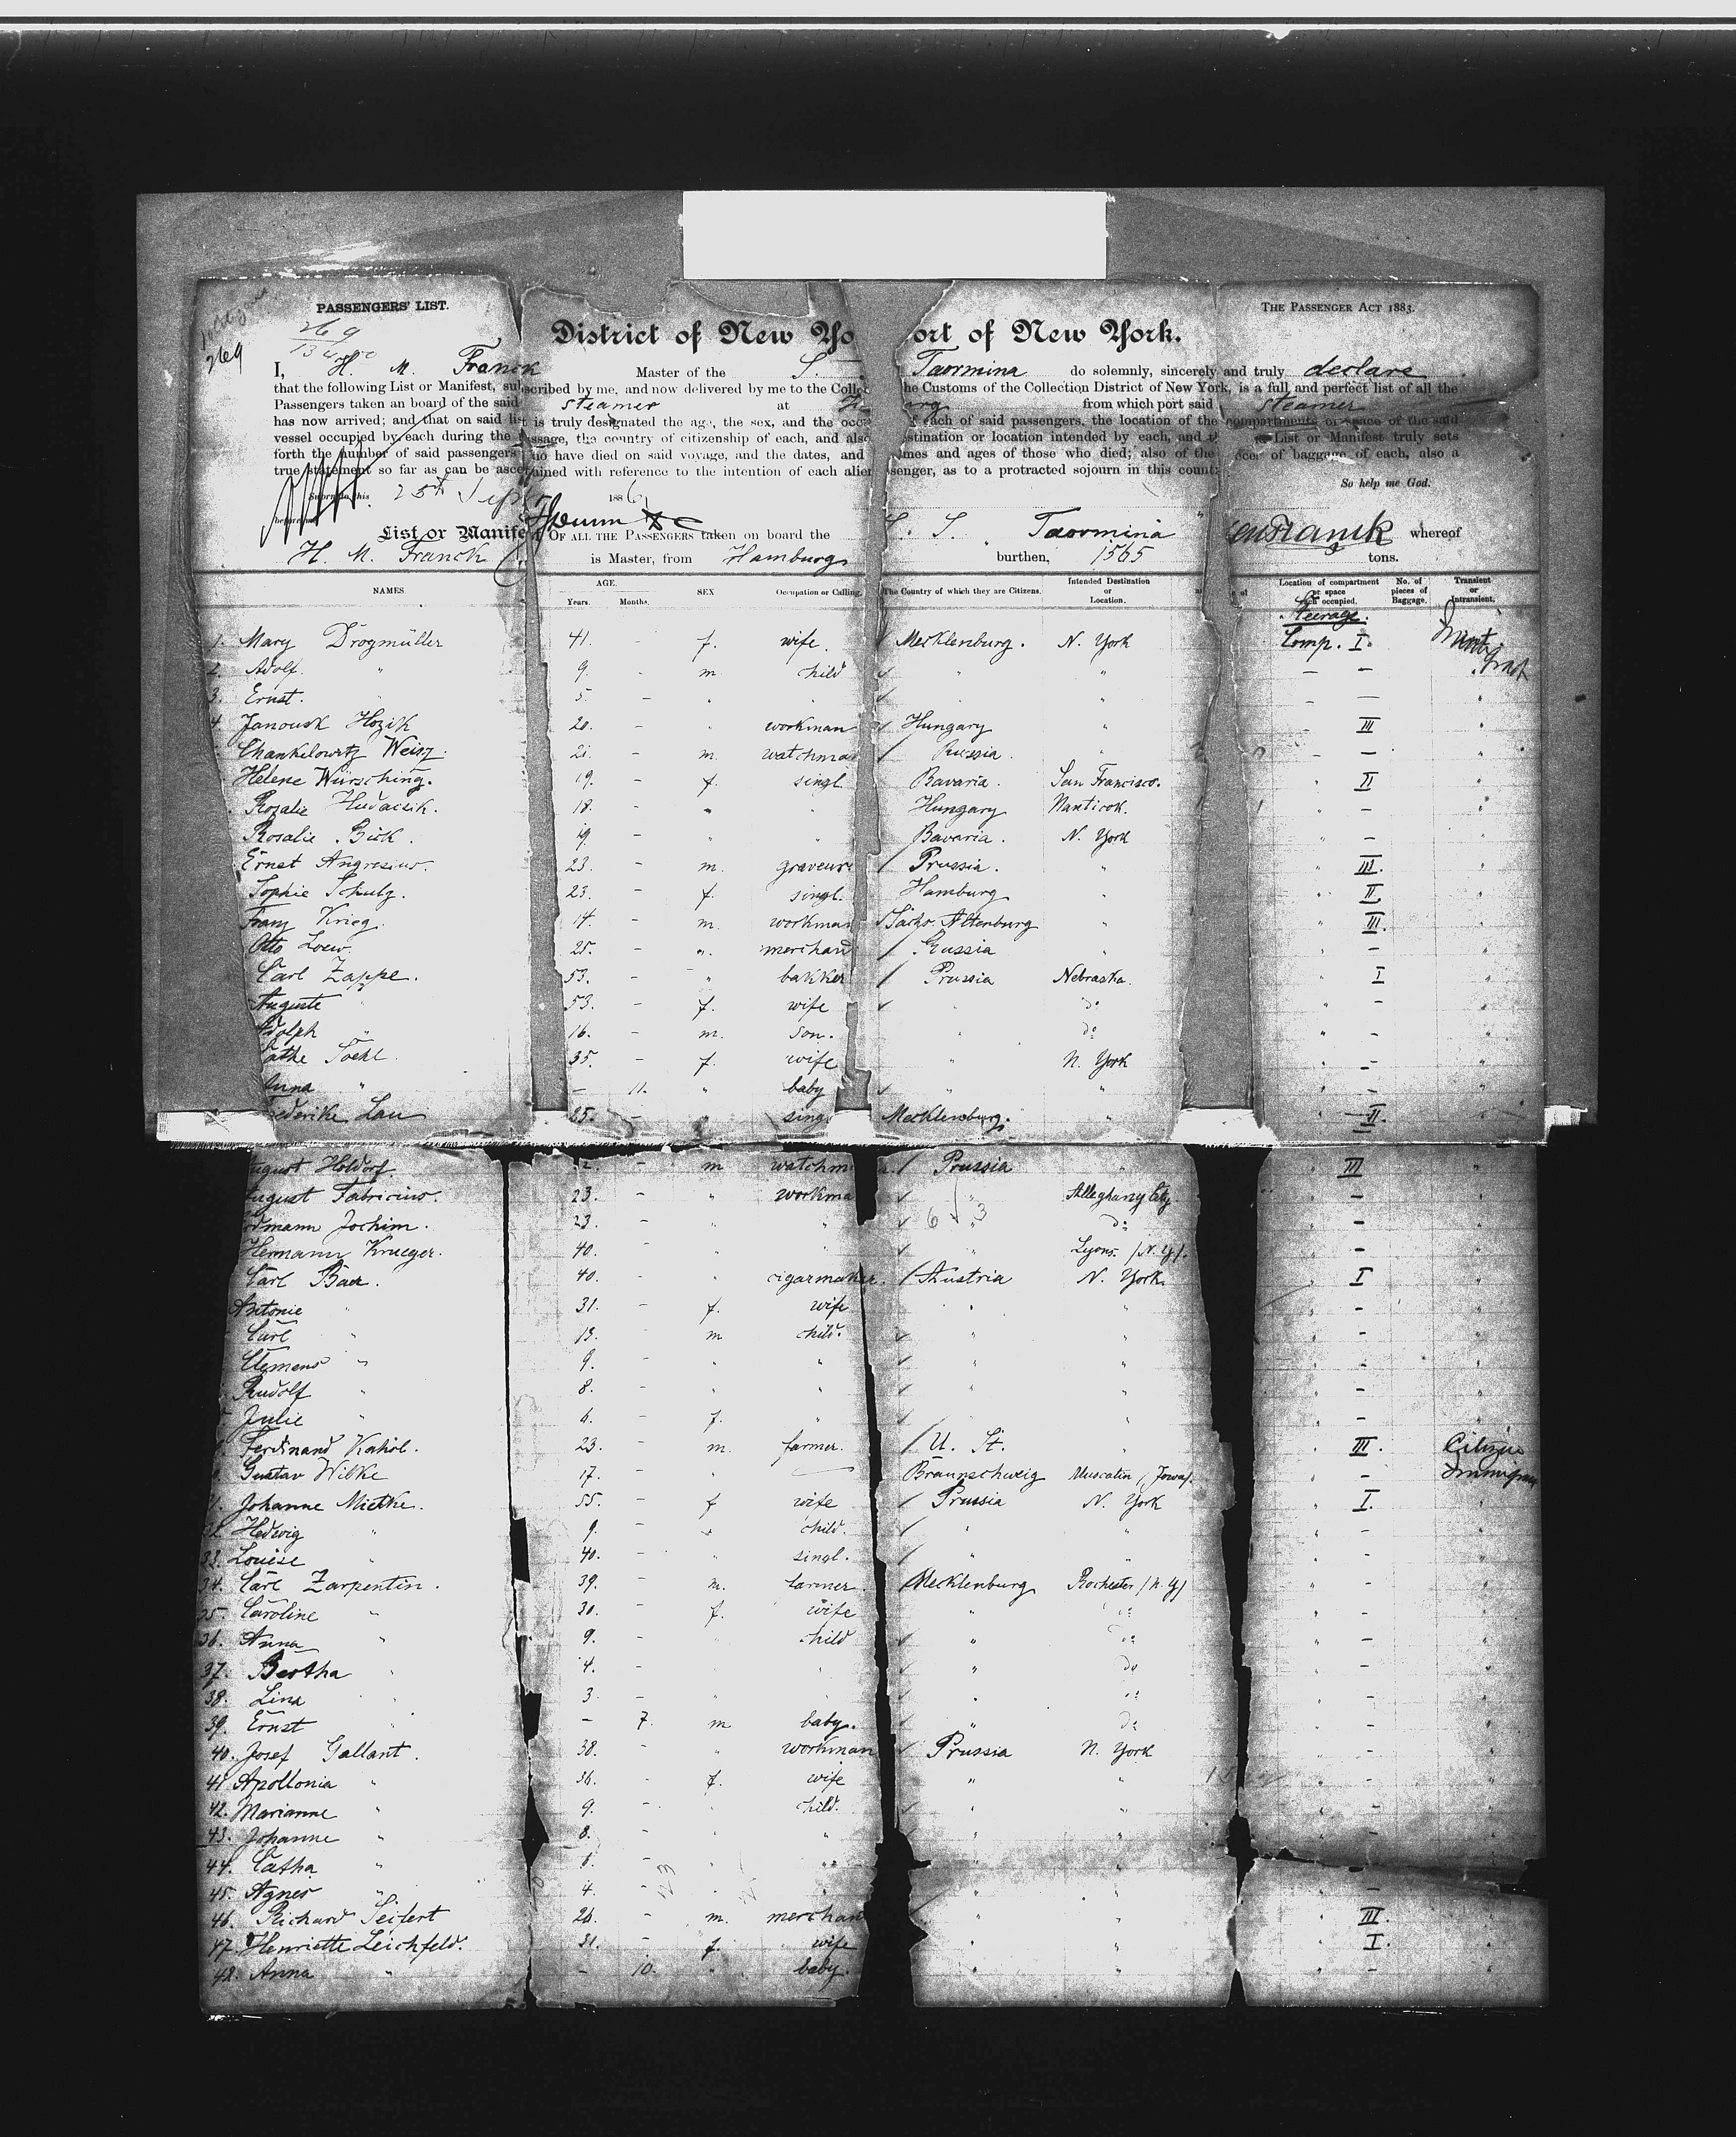 PASSENGERS' LIST.
THE PASSENGER ACT 1883.
269
269
District of New Yo ort of New York.
I, H. M. Franck Master of the S. Taormina do solemnly, sincerely and truly declare
that the following List or Manifest, subscribed by me, and now delivered by me to the Collec he Customs of the Collection District of New York, is a full and perfect list of all the
Passengers taken an board of the said steamer at H arg from which port said steamer
has now arrived; and that on said list is truly designated the age, the sex, and the occu f each of said passengers, the location of the compartments or space of the said
vessel occupied by each during the passage, the country of citizenship of each, and also stination or location intended by each, and t List or Manifest truly sets
forth the number of said passengers who have died on said voyage, and the dates, and mes and ages of those who died; also of the pieces of baggage of each, also a
true statement so far as can be ascertained with reference to the intention of each alien ssenger, as to a protracted sojourn in this count
So help me God.
Sworn to this 25th Sept 1886
before me
List or Manifest OF ALL THE PASSENGERS taken on board the S. S. Taormina whereof
H. M. Franck is Master, from Hamburg burthen, 1565 tons.
NAMES. AGE. Years. Months. SEX Occupation or Calling. The Country of which they are Citizens. Intended Destination or Location. Location of compartment or space occupied. No. of pieces of Baggage. Transient or Intransient.
Steerage
1. Mary Drogmüller 41. - f. wife. Mecklenburg. N. York Comp. I.
2. Adolf. " 9. - m child " " — —
3. Ernst. " 5. - " " " " — —
4. Janousk Hozik 20. - " workman Hungary " III "
Chankelowitz Weisz. 21. - m. watchma Russia. " — "
Helene Würsching. 19. - f. singl. Bavaria. San Francisco. " II "
Rozalie Hudacsik. 18. - " " Hungary Nanticok. " - "
Rosalie Bick. 19. - " " Bavaria. N. York " - "
Ernst Angresius. 23. - m. graveur Prussia. " " III. "
Sophie Schulz. 23. - f. singl. Hamburg " " II "
Franz Krieg. 14. - m. workman Sachs. Altenburg " " III. "
Otto Loew. 25. - ". merchand Russia " " - "
Carl Zappe. 53. - " bakker Prussia Nebraska. I "
Auguste " 53. - f. wife " do " - "
Adolph " 16. - m. son. " do " - "
Käthe Soehl. 35. - f. wife " N. York " - "
Anna " - 11. " baby " " " - "
ederike Lau 25. - " sing Mecklenburg. " " II. "
ugust Holdorf. 2. - m watchm Prussia " III "
August Fabricius. 23. - " workma " Alleghany City. -
dmann Jochim. 23. - " " " do -
Hermann Krueger. 40. - " " " Lyons. (N. Y). -
Carl Baer. 40. - " cigarmaker. Austria N. York. I "
Antonie " 31. - f. wife " " -
Carl " 13. - m child. " " -
Clemens " 9. - " " " " -
Rudolf " 8. - " " " " -
Julie " 6. - f. " " " -
Ferdinand Kahöl. 23. - m. farmer. U. St. " " III. Citizen
Gustav Wilke 17. - " Braunschweig Muscatin, Jowa). " -
31. Johanne Mietke. 55. - f wife Prussia N. York " I. "
32. Hedwig " 9. - " child. " " " - "
33. Louise " 40. - " singl. " " " - "
34. Carl Zarpentin. 39. - m. farmer. Mecklenburg Rochester (N. Y) " - "
35. Caroline " 30. - f. wife " do " - "
36. Anna " 9. - child " do " - "
37. Bertha " 4. - " " do " - "
38. Lina " 3 - " " " do " - "
39. Ernst " - 7. m baby. " do " - "
40. Josef Gallant. 38. - " workman Prussia N. York " - "
41 Apollonia " 36. - f. wife " " " - "
42. Marianne " 9. - " child. " " " - "
43. Johanne " 8. - " " " " " - "
44. Catha " 6. - " "
45. Agnes " 4. - " " " " " - "
46. Richard Seifert 26. - m. merchan " " " III. "
47. Henriette Leichfeld. 31. - f. wife " " " I. "
48. Anna " - 10. " baby. " " " - "